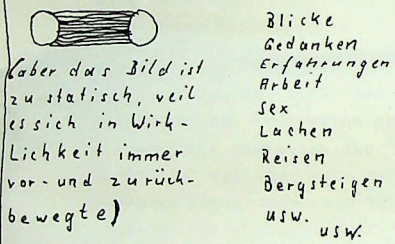 (aber das Bild ist
zu statisch, veil
es sich in Wirk-
lichkeit immer
vor- und zurück-
bewegte)
Blicke
Gedanken
Erfahrungen
Arbeit
Sex
Lachen
Reisen
Bergsteigen
usw.
usw.